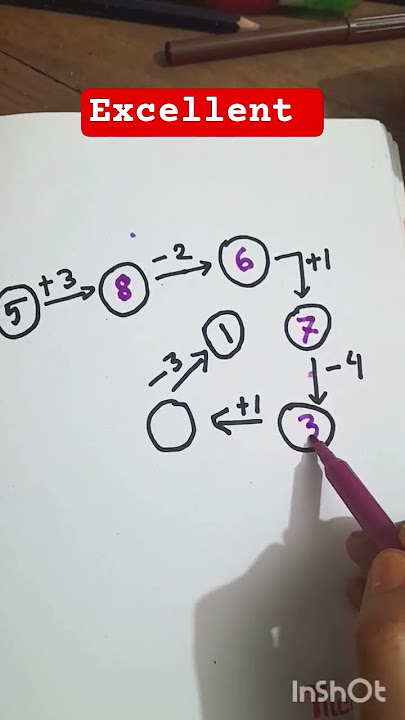 Excellent
5 +3 8 -2 6 +1
7
-4
3
+1
-3
1
InShOt